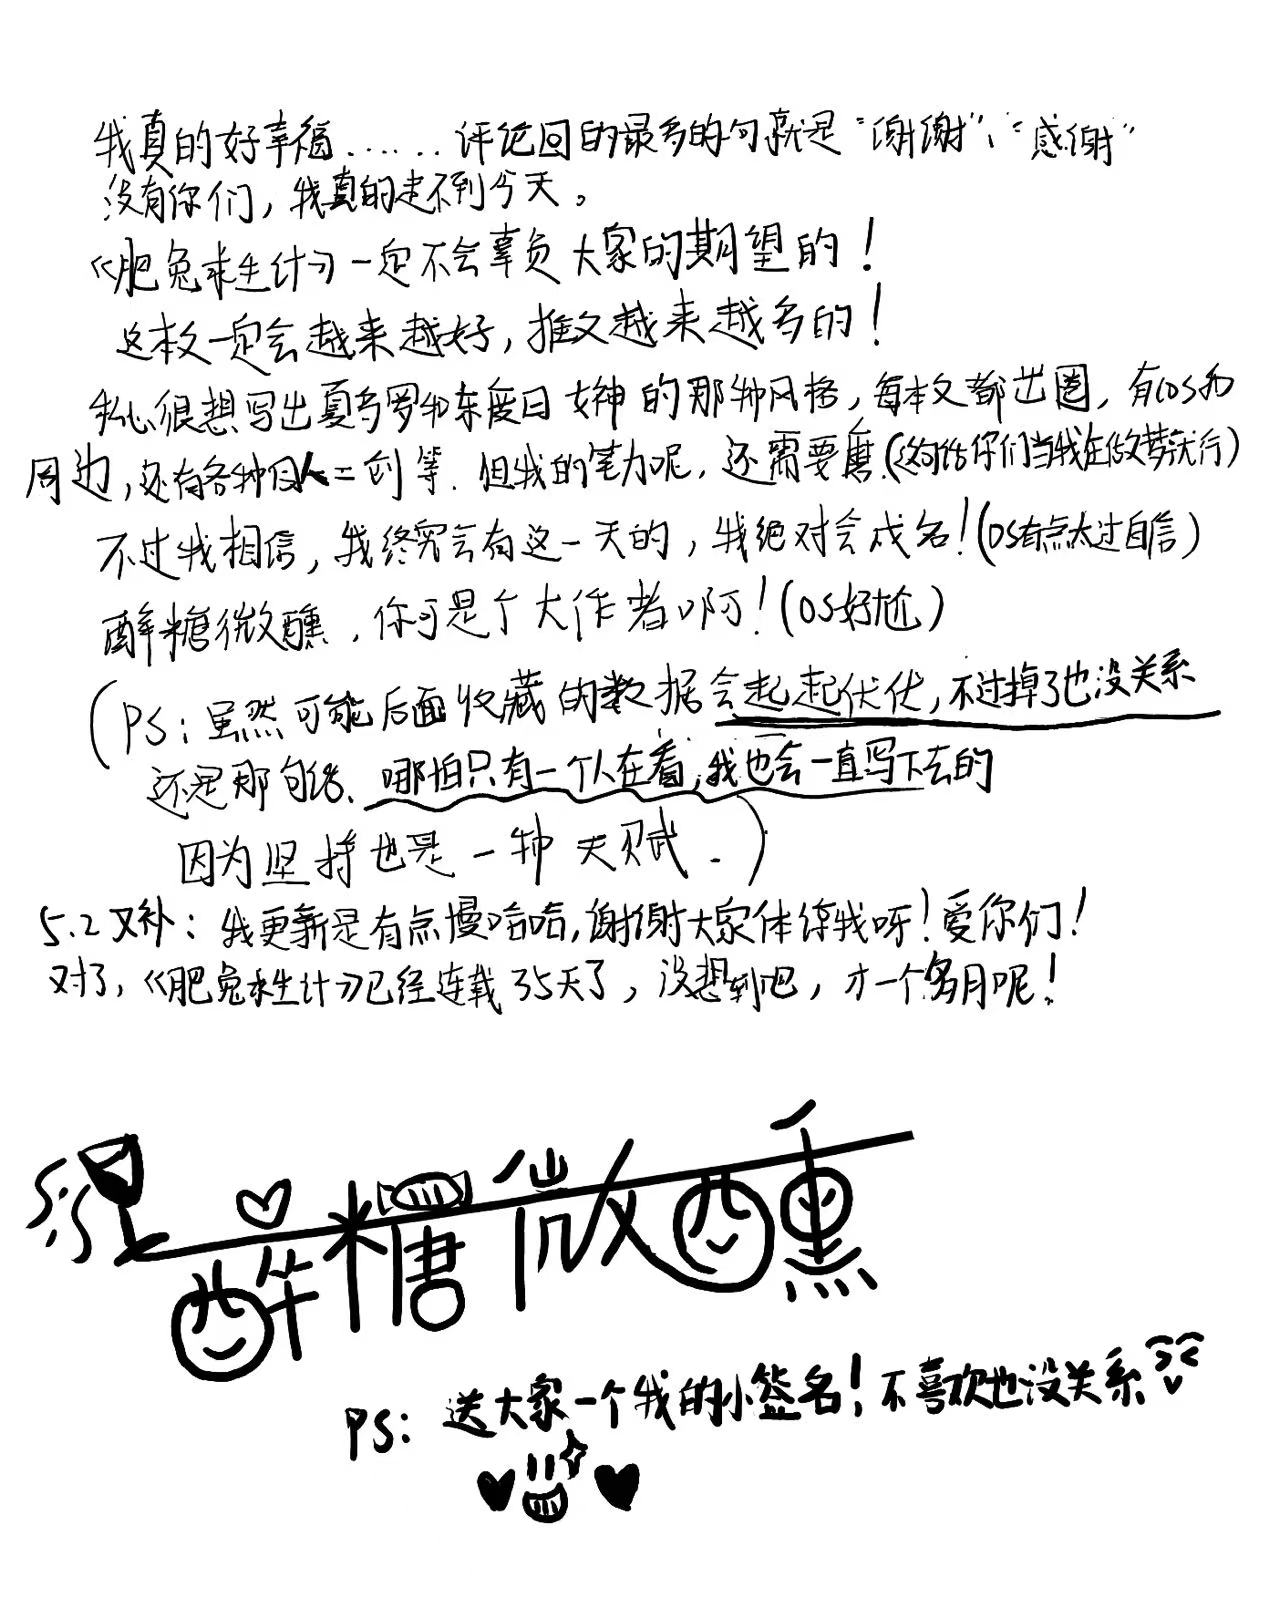 我真的好幸福……评论回的最多的句就是“谢谢”、“感谢”
没有你们，我真的走不到今天。
《肥兔求生计》一定不会辜负大家的期望的！
这本文一定会越来越好，推文越来越多的！
私心很想写出夏多罗和东度日女神的那种风格，每本文都出圈，有cos和
周边，还有各种同人二创等．但我的笔力呢，还需要磨．(这句话你们当我在做梦就行)
不过我相信，我终究会有这一天的，我绝对会成名！(OS有点太过自信)
醉糖微醺，你可是个大作者啊！(OS好尬)
(PS：虽然可能后面收藏的数据会起起伏伏，不过掉了也没关系
还是那句话、哪怕只有一个人在看，我也会一直写下去的
因为坚持也是一种天赋．)
5.2又补：我更新是有点慢哈哈，谢谢大家体谅我呀！爱你们！
对了，《肥兔求生计》已经连载35天了，没想到吧，才一个多月呢！
醉糖微醺
PS：送大家一个我的小签名！不喜欢也没关系